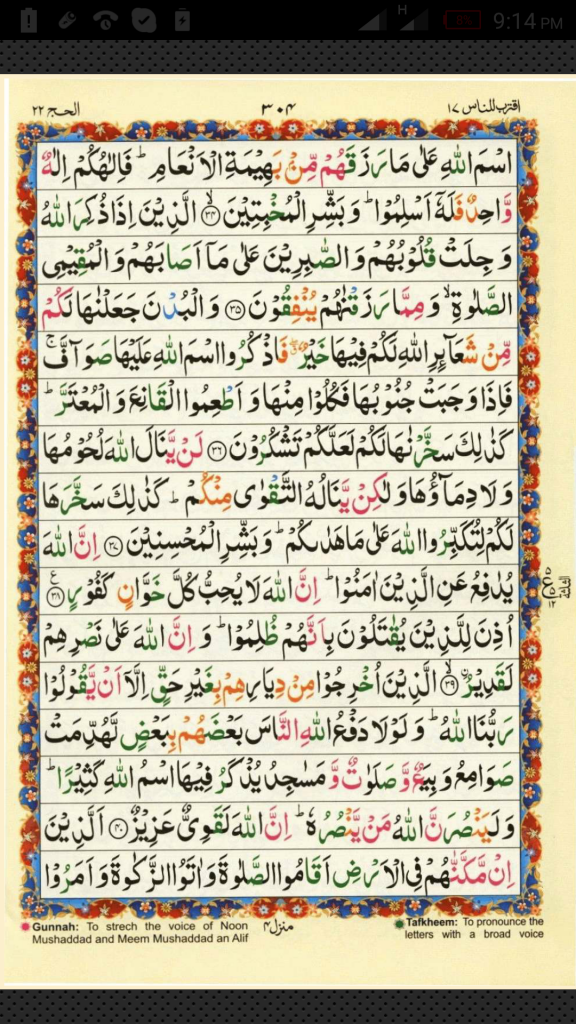 H 6% 9:14 PM
اقترب للناس ١٧ ٣٠٤ الحج ٢٢
اسْمَ اللّٰهِ عَلٰى مَا رَزَقَهُمْ مِّنْۢ بَهِيْمَةِ الْاَنْعَامِ ؕ فَاِلٰهُكُمْ اِلٰهٌ
وَّاحِدٌ فَلَهٗۤ اَسْلِمُوْا ؕ وَبَشِّرِ الْمُخْبِتِيْنَ ۙ‏﴿۳۴﴾ الَّذِيْنَ اِذَا ذُكِرَ اللّٰهُ
وَجِلَتْ قُلُوْبُهُمْ وَالصّٰبِرِيْنَ عَلٰى مَاۤ اَصَابَهُمْ وَالْمُقِيْمِى
الصَّلٰوةِ ۙ وَمِمَّا رَزَقْنٰهُمْ يُنْفِقُوْنَ ﴿۳۵﴾ وَالْبُدْنَ جَعَلْنٰهَا لَكُمْ
مِّنْ شَعَآىِٕرِ اللّٰهِ لَكُمْ فِيْهَا خَيْرٌ ۖ فَاذْكُرُوا اسْمَ اللّٰهِ عَلَيْهَا صَوَآفَّ ۚ
فَاِذَا وَجَبَتْ جُنُوْبُهَا فَكُلُوْا مِنْهَا وَاَطْعِمُوا الْقَانِعَ وَالْمُعْتَرَّ ؕ
كَذٰلِكَ سَخَّرْنٰهَا لَكُمْ لَعَلَّكُمْ تَشْكُرُوْنَ ﴿۳۶﴾ لَنْ يَّنَالَ اللّٰهَ لُحُوْمُهَا
وَلَا دِمَآؤُهَا وَلٰكِنْ يَّنَالُهُ التَّقْوٰى مِنْكُمْ ؕ كَذٰلِكَ سَخَّرَهَا
لَكُمْ لِتُكَبِّرُوا اللّٰهَ عَلٰى مَا هَدٰىكُمْ ؕ وَبَشِّرِ الْمُحْسِنِيْنَ ﴿۳۷﴾ اِنَّ اللّٰهَ
يُدٰفِعُ عَنِ الَّذِيْنَ اٰمَنُوْا ؕ اِنَّ اللّٰهَ لَا يُحِبُّ كُلَّ خَوَّانٍ كَفُوْرٍ ﴿۳۸﴾ ع
اُذِنَ لِلَّذِيْنَ يُقٰتَلُوْنَ بِاَنَّهُمْ ظُلِمُوْا ؕ وَاِنَّ اللّٰهَ عَلٰى نَصْرِهِمْ
لَقَدِيْرُ ۙ ﴿۳۹﴾ الَّذِيْنَ اُخْرِجُوْا مِنْ دِيَارِهِمْ بِغَيْرِ حَقٍّ اِلَّاۤ اَنْ يَّقُوْلُوْا
رَبُّنَا اللّٰهُ ؕ وَلَوْلَا دَفْعُ اللّٰهِ النَّاسَ بَعْضَهُمْ بِبَعْضٍ لَّهُدِّمَتْ
صَوَامِعُ وَبِيَعٌ وَّصَلَوٰتٌ وَّمَسٰجِدُ يُذْكَرُ فِيْهَا اسْمُ اللّٰهِ كَثِيْرًا ؕ
وَلَيَنْصُرَنَّ اللّٰهُ مَنْ يَّنْصُرُهٗ ؕ اِنَّ اللّٰهَ لَقَوِىٌّ عَزِيْزٌ ﴿۴۰﴾ اَلَّذِيْنَ
اِنْ مَّكَّنّٰهُمْ فِى الْاَرْضِ اَقَامُوا الصَّلٰوةَ وَاٰتَوُا الزَّكٰوةَ وَاَمَرُوْا
Gunnah: To strech the voice of Noon
Mushaddad and Meem Mushaddad an Alif
منزل ۴
Tafkheem: To pronounce the
letters with a broad voice